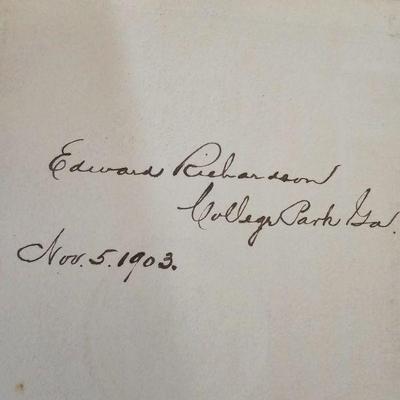 Edward Richardson
College Park Ga.
Nov. 5. 1903.